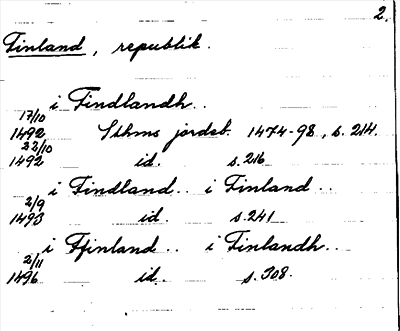 2.
Finland, republik.
i Findlandh..
17/10
1492 Sthms jordeb. 1474-98, s. 214.
22/10
1492 id. s. 216
i Findland.. i Finland..
2/9
1493 id. s. 241
i Ffinland.. i Finlandh..
2/11
1496 id. s. 308.